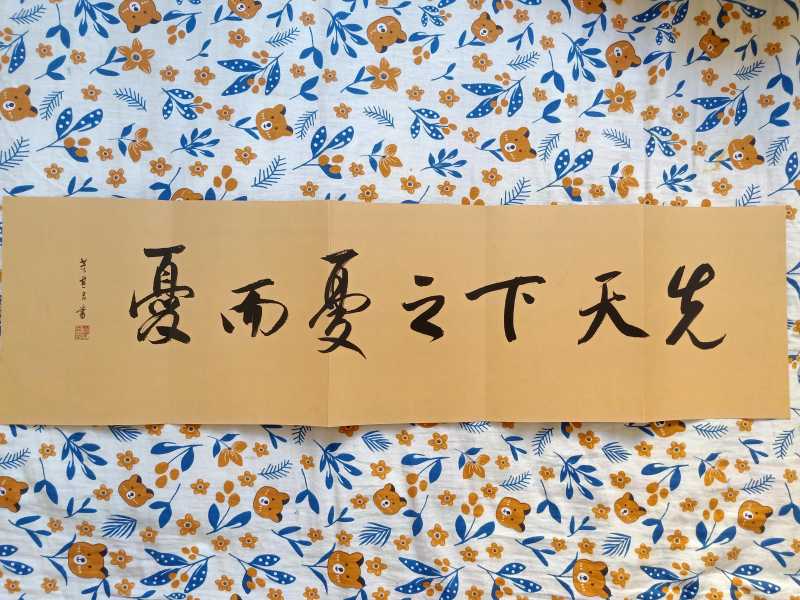 先天下之憂而憂